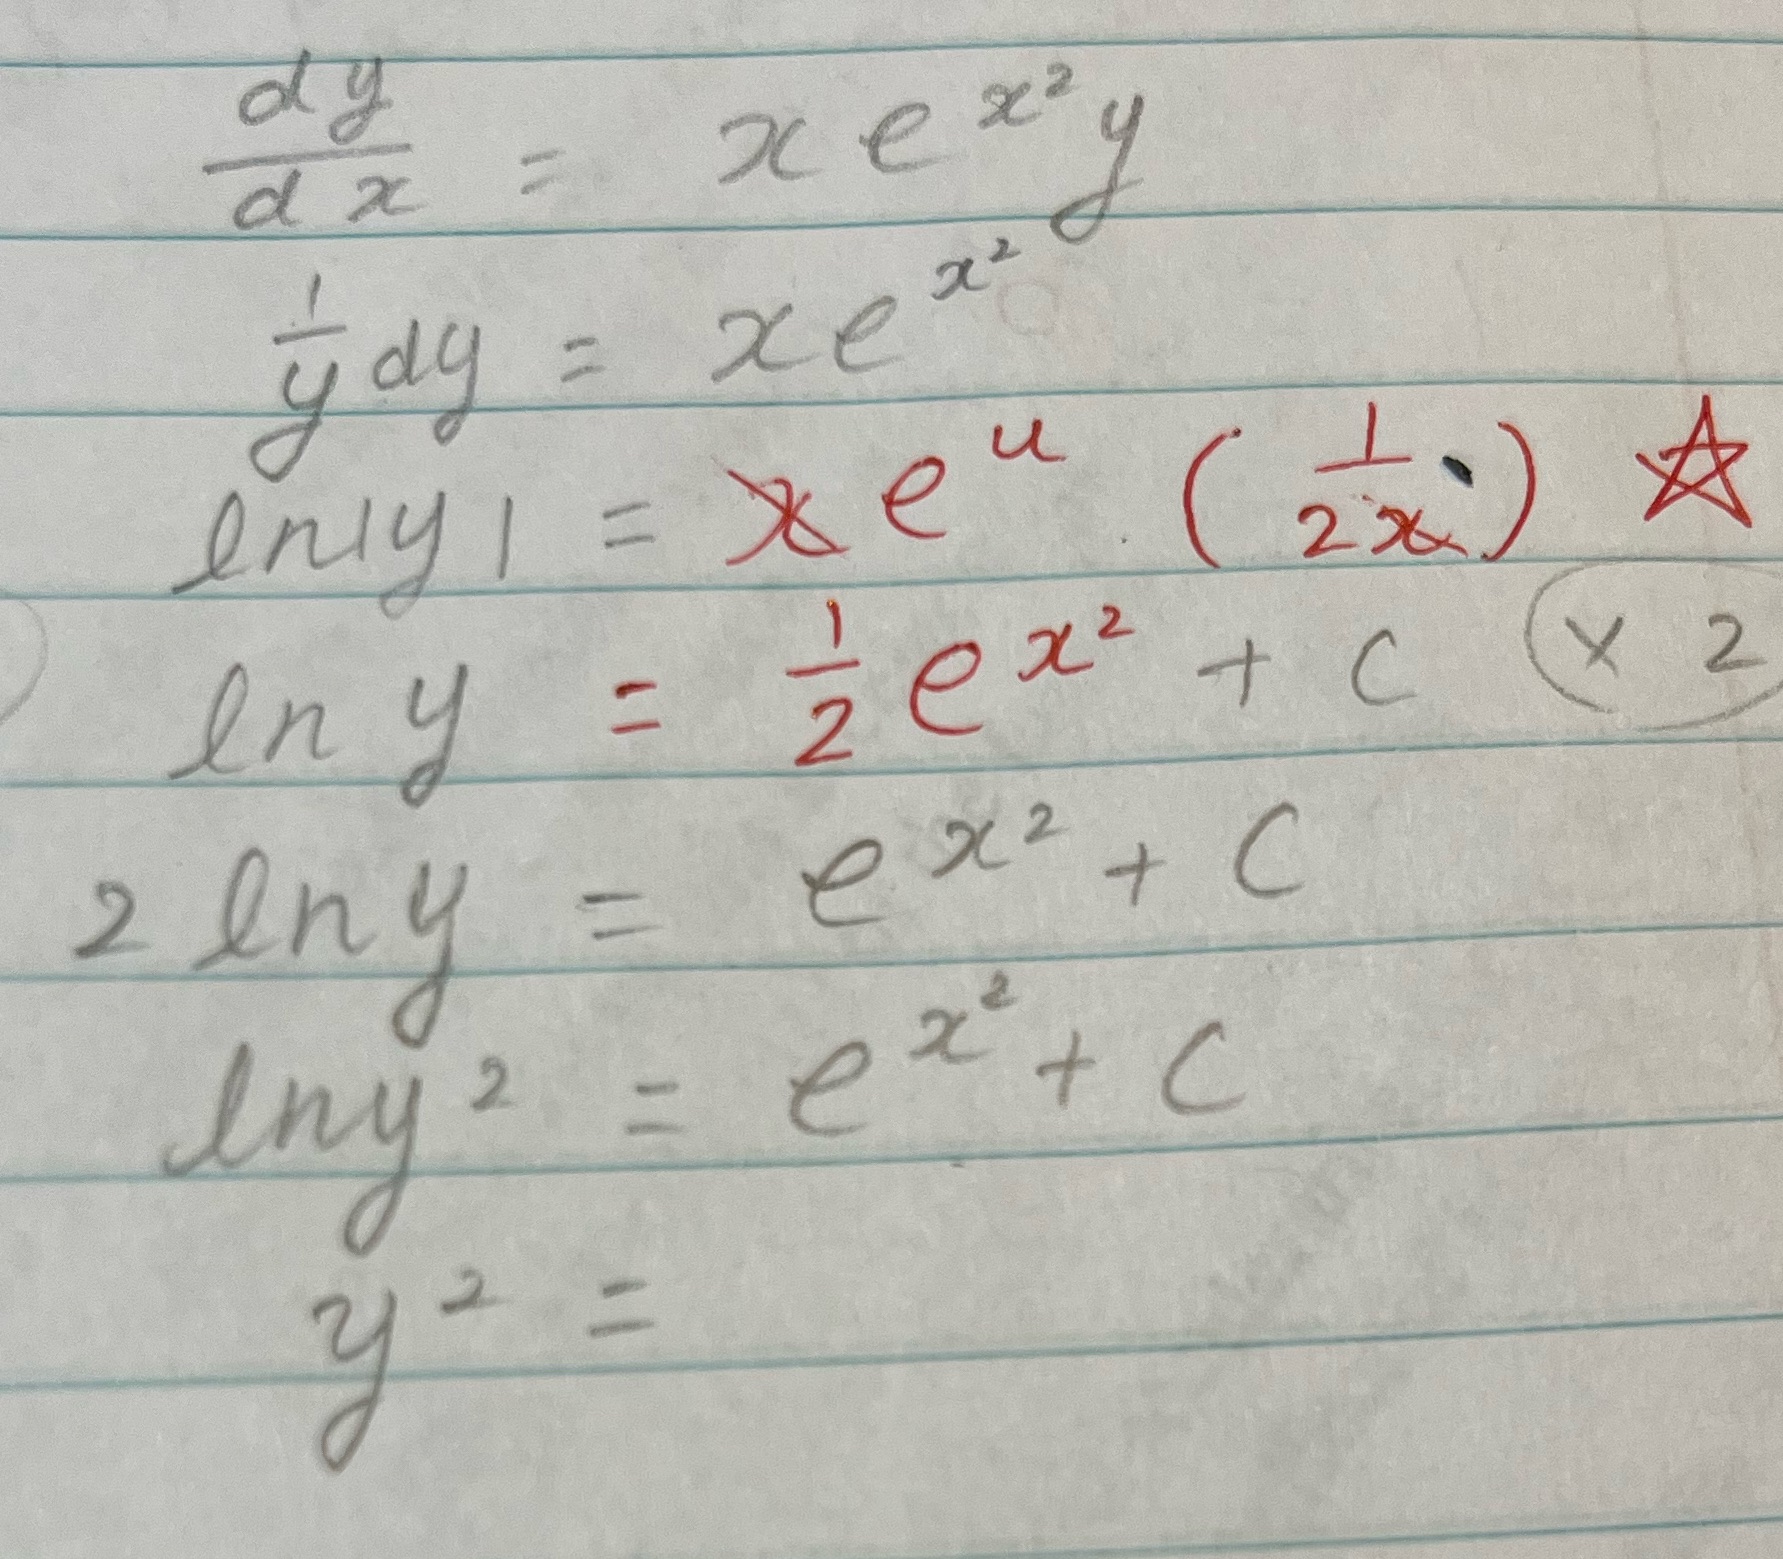 dy/dx = x e^{x²} y
1/y dy = x e^{x²}
ln|y| = x e^u · (1/2x) ☆
ln y = 1/2 e^{x²} + C (× 2)
2 ln y = e^{x²} + C
ln y² = e^{x²} + C
y² =